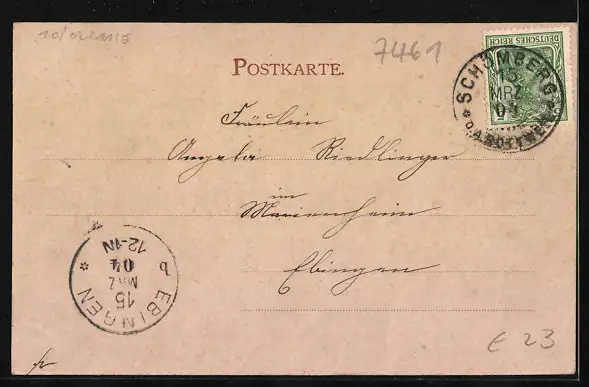 7461
DEUTSCHES REICH
POSTKARTE.
SCHÖMBERG
15
MRZ
04
Fräulein
Angela Riedlinger
im
Marienheim
Ebingen
EBINGEN
15
MRZ
04
12-1N
b
€ 23